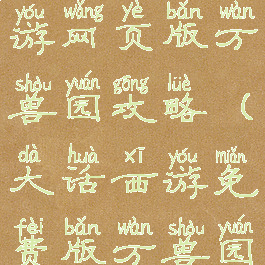 yóu wǎng yè bǎn wàn
游网页版万
shòu yuán gōng lüè
兽园攻略（
dà huà xī yóu miǎn
大话西游免
fèi bǎn wàn shòu yuán
费版万兽园